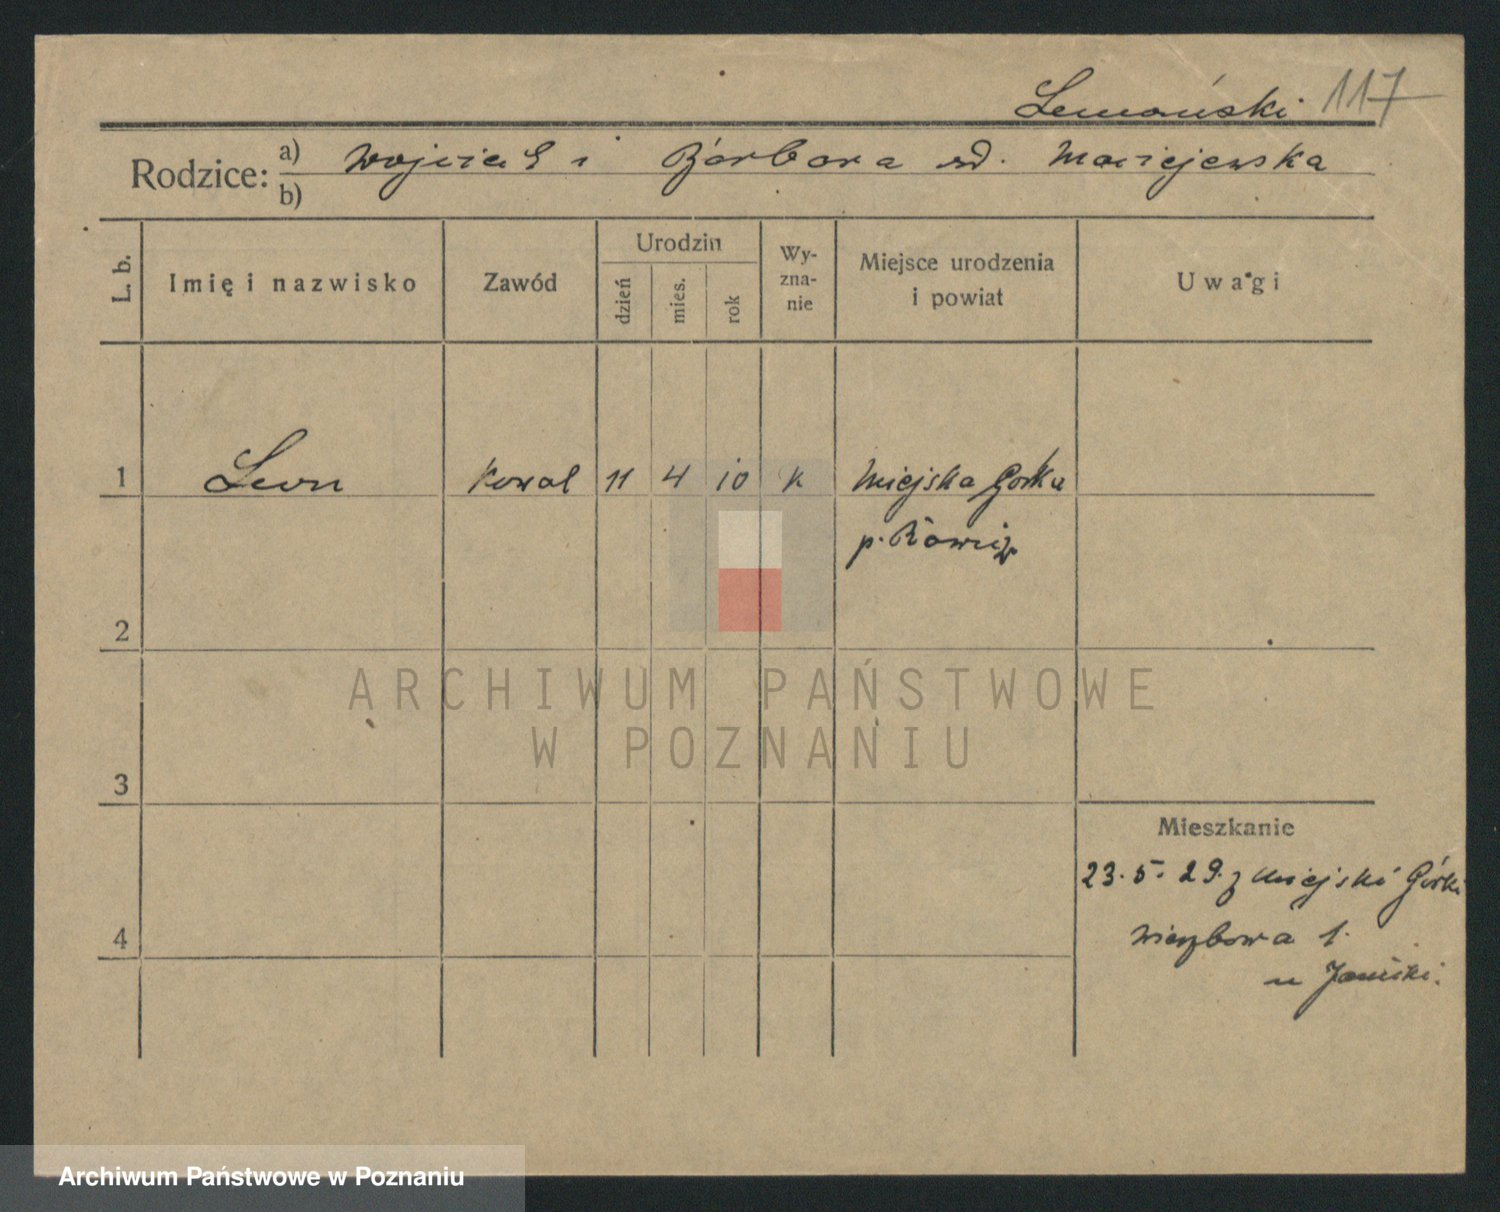 Lemański 117
Rodzice: a) Wojciech i Barbara zd. Maciejewska
b)
L. b. Imię i nazwisko Zawód Urodzin dzień mies. rok Wyzna-nie Miejsce urodzenia i powiat Uwagi
1 Leon kowal 11 4 10 k Miejska Górka
p. Rawicz
2
ARCHIWUM PAŃSTWOWE
W POZNANIU
3
Mieszkanie
23. 5. 29. z Miejski Górki
4 Wierzbowa 1.
u Jański.
Archiwum Państwowe w Poznaniu